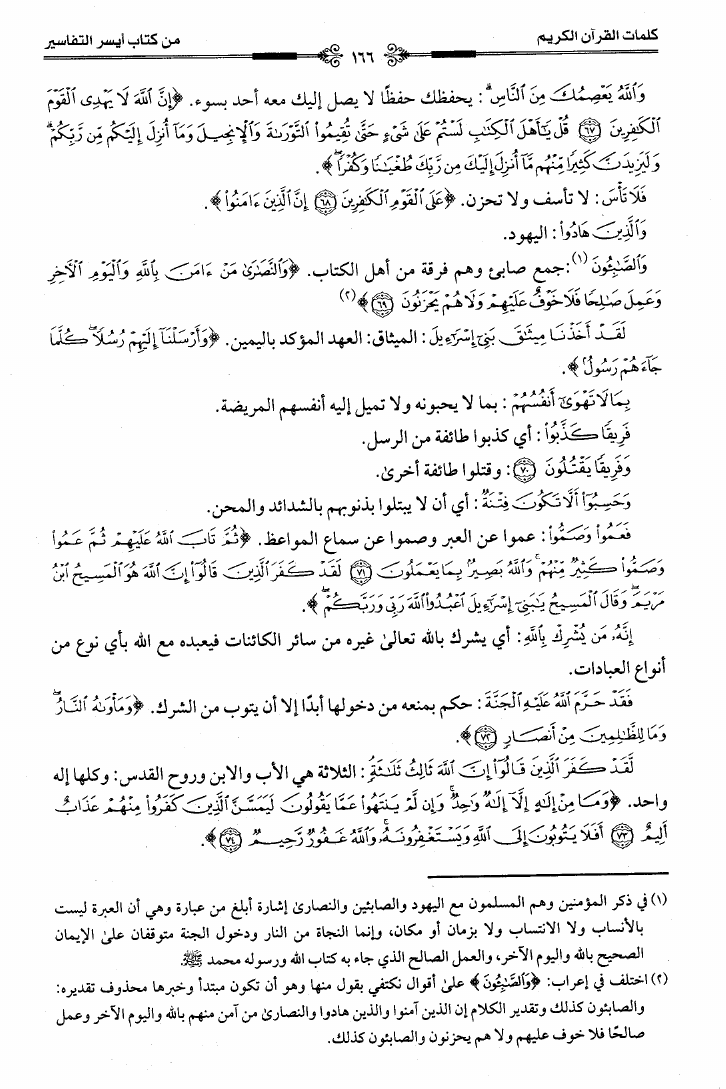 كلمات القرآن الكريم ١٦٦ من كتاب أيسر التفاسير
وَٱللَّهُ يَعْصِمُكَ مِنَ ٱلنَّاسِ ۗ: يحفظك حفظًا لا يصل إليك معه أحد بسوء. ﴿إِنَّ ٱللَّهَ لَا يَهْدِى ٱلْقَوْمَ
ٱلْكَٰفِرِينَ ۝٦٧ قُلْ يَٰٓأَهْلَ ٱلْكِتَٰبِ لَسْتُمْ عَلَىٰ شَىْءٍ حَتَّىٰ تُقِيمُوا۟ ٱلتَّوْرَىٰةَ وَٱلْإِنجِيلَ وَمَآ أُنزِلَ إِلَيْكُم مِّن رَّبِّكُمْ ۗ
وَلَيَزِيدَنَّ كَثِيرًا مِّنْهُم مَّآ أُنزِلَ إِلَيْكَ مِن رَّبِّكَ طُغْيَٰنًا وَكُفْرًا ۖ﴾.
فَلَا تَأْسَ: لا تأسف ولا تحزن. ﴿عَلَى ٱلْقَوْمِ ٱلْكَٰفِرِينَ ۝٦٨ إِنَّ ٱلَّذِينَ ءَامَنُوا۟﴾.
وَٱلَّذِينَ هَادُوا۟: اليهود.
وَٱلصَّٰبِـُٔونَ (١): جمع صابئ وهم فرقة من أهل الكتاب. ﴿وَٱلنَّصَٰرَىٰ مَنْ ءَامَنَ بِٱللَّهِ وَٱلْيَوْمِ ٱلْءَاخِرِ
وَعَمِلَ صَٰلِحًا فَلَا خَوْفٌ عَلَيْهِمْ وَلَا هُمْ يَحْزَنُونَ ۝٦٩﴾ (٢)
لَقَدْ أَخَذْنَا مِيثَٰقَ بَنِىٓ إِسْرَٰٓءِيلَ: الميثاق: العهد المؤكد باليمين. ﴿وَأَرْسَلْنَآ إِلَيْهِمْ رُسُلًا ۖ كُلَّمَا
جَآءَهُمْ رَسُولٌۢ﴾.
بِمَا لَا تَهْوَىٰٓ أَنفُسُهُمْ: بما لا يحبونه ولا تميل إليه أنفسهم المريضة.
فَرِيقًا كَذَّبُوا۟: أي كذبوا طائفة من الرسل.
وَفَرِيقًا يَقْتُلُونَ ۝٧٠: وقتلوا طائفة أخرىٰ.
وَحَسِبُوٓا۟ أَلَّا تَكُونَ فِتْنَةٌ: أي أن لا يبتلوا بذنوبهم بالشدائد والمحن.
فَعَمُوا۟ وَصَمُّوا۟: عموا عن العبر وصموا عن سماع المواعظ. ﴿ثُمَّ تَابَ ٱللَّهُ عَلَيْهِمْ ثُمَّ عَمُوا۟
وَصَمُّوا۟ كَثِيرٌ مِّنْهُمْ ۚ وَٱللَّهُ بَصِيرٌۢ بِمَا يَعْمَلُونَ ۝٧١ لَقَدْ كَفَرَ ٱلَّذِينَ قَالُوٓا۟ إِنَّ ٱللَّهَ هُوَ ٱلْمَسِيحُ ٱبْنُ
مَرْيَمَ ۖ وَقَالَ ٱلْمَسِيحُ يَٰبَنِىٓ إِسْرَٰٓءِيلَ ٱعْبُدُوا۟ ٱللَّهَ رَبِّى وَرَبَّكُمْ ۖ﴾.
إِنَّهُۥ مَن يُشْرِكْ بِٱللَّهِ: أي يشرك بالله تعالىٰ غيره من سائر الكائنات فيعبده مع الله بأي نوع من
أنواع العبادات.
فَقَدْ حَرَّمَ ٱللَّهُ عَلَيْهِ ٱلْجَنَّةَ: حكم بمنعه من دخولها أبدًا إلا أن يتوب من الشرك. ﴿وَمَأْوَىٰهُ ٱلنَّارُ ۖ
وَمَا لِلظَّٰلِمِينَ مِنْ أَنصَارٍ ۝٧٢﴾.
لَّقَدْ كَفَرَ ٱلَّذِينَ قَالُوٓا۟ إِنَّ ٱللَّهَ ثَالِثُ ثَلَٰثَةٍ ۘ: الثلاثة هي الأب والابن وروح القدس: وكلها إله
واحد. ﴿وَمَا مِنْ إِلَٰهٍ إِلَّآ إِلَٰهٌ وَٰحِدٌ ۚ وَإِن لَّمْ يَنتَهُوا۟ عَمَّا يَقُولُونَ لَيَمَسَّنَّ ٱلَّذِينَ كَفَرُوا۟ مِنْهُمْ عَذَابٌ
أَلِيمٌ ۝٧٣ أَفَلَا يَتُوبُونَ إِلَى ٱللَّهِ وَيَسْتَغْفِرُونَهُۥ ۚ وَٱللَّهُ غَفُورٌ رَّحِيمٌ ۝٧٤﴾.
(١) في ذكر المؤمنين وهم المسلمون مع اليهود والصابئين والنصارىٰ إشارة أبلغ من عبارة وهي أن العبرة ليست
بالأنساب ولا الانتساب ولا بزمان أو مكان، وإنما النجاة من النار ودخول الجنة متوقفان علىٰ الإيمان
الصحيح بالله واليوم الآخر، والعمل الصالح الذي جاء به كتاب الله ورسوله محمد ﷺ.
(٢) اختلف في إعراب: ﴿وَٱلصَّٰبِـُٔونَ﴾ علىٰ أقوال نكتفي بقول منها وهو أن تكون مبتدأ وخبرها محذوف تقديره:
والصابئون كذلك وتقدير الكلام إن الذين آمنوا والذين هادوا والنصارىٰ من آمن منهم بالله واليوم الآخر وعمل
صالحًا فلا خوف عليهم ولا هم يحزنون والصابئون كذلك.